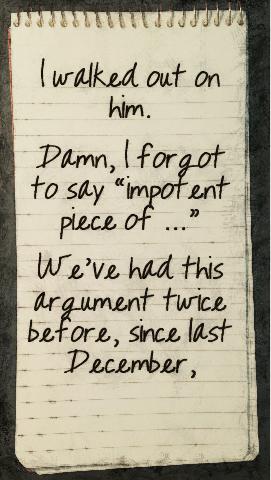 I walked out on
him.
Damn, I forgot
to say "impotent
piece of ..."
We've had this
argument twice
before, since last
December,